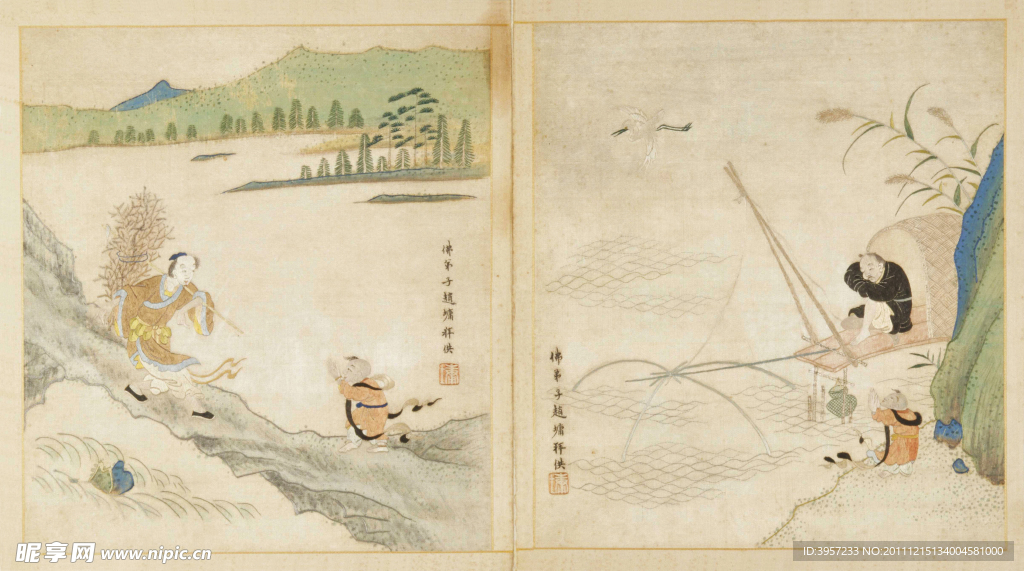 佛弟子趙墉拜供
佛弟子趙墉拜供
昵享网 www.nipic.cn
ID:3957233 NO:20111215134004581000